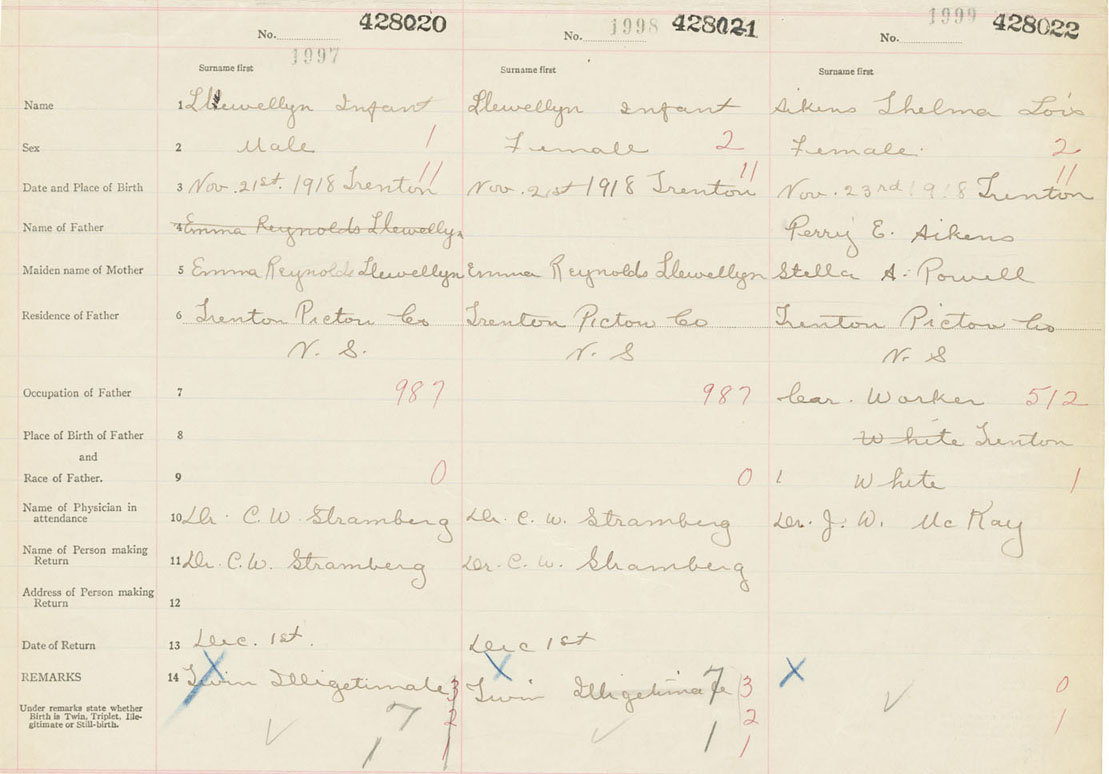 428020 1998 428021 1999 428022
No. No. No.
1997
Surname first Surname first Surname first
Name 1 Llewellyn Infant Llewellyn Infant Aikens Thelma Lois
Sex 2 Male 1 Female 2 Female. 2
11 11 11
Date and Place of Birth 3 Nov. 21st. 1918 Trenton Nov. 21st 1918 Trenton Nov. 23rd 1918 Trenton
Name of Father 4 Emma Reynolds Llewellyn Perry E. Aikens
Maiden name of Mother 5 Emma Reynolds Llewellyn Emma Reynolds Llewellyn Stella A. Powell
Residence of Father 6 Trenton Pictou Co Trenton Pictou Co Trenton Pictou Co
N. S. N. S N S
Occupation of Father 7 987 987 Car. Worker 512
Place of Birth of Father 8 White Trenton
and
Race of Father. 9 0 0 White 1
Name of Physician in
attendance 10 Dr. C. W. Stramberg Dr. C. W. Stramberg Dr. J. W. McKay
Name of Person making
Return 11 Dr. C. W. Stramberg Dr. C. W. Stramberg
Address of Person making
Return 12
Date of Return 13 Dec. 1st. Dec 1st
REMARKS 14 Twin Illigetimate 3 Twin Illigetimate 7 3 0
Under remarks state whether
Birth is Twin, Triplet, Ille-
gitimate or Still-birth.
7 2 2 1
1 1 1 1